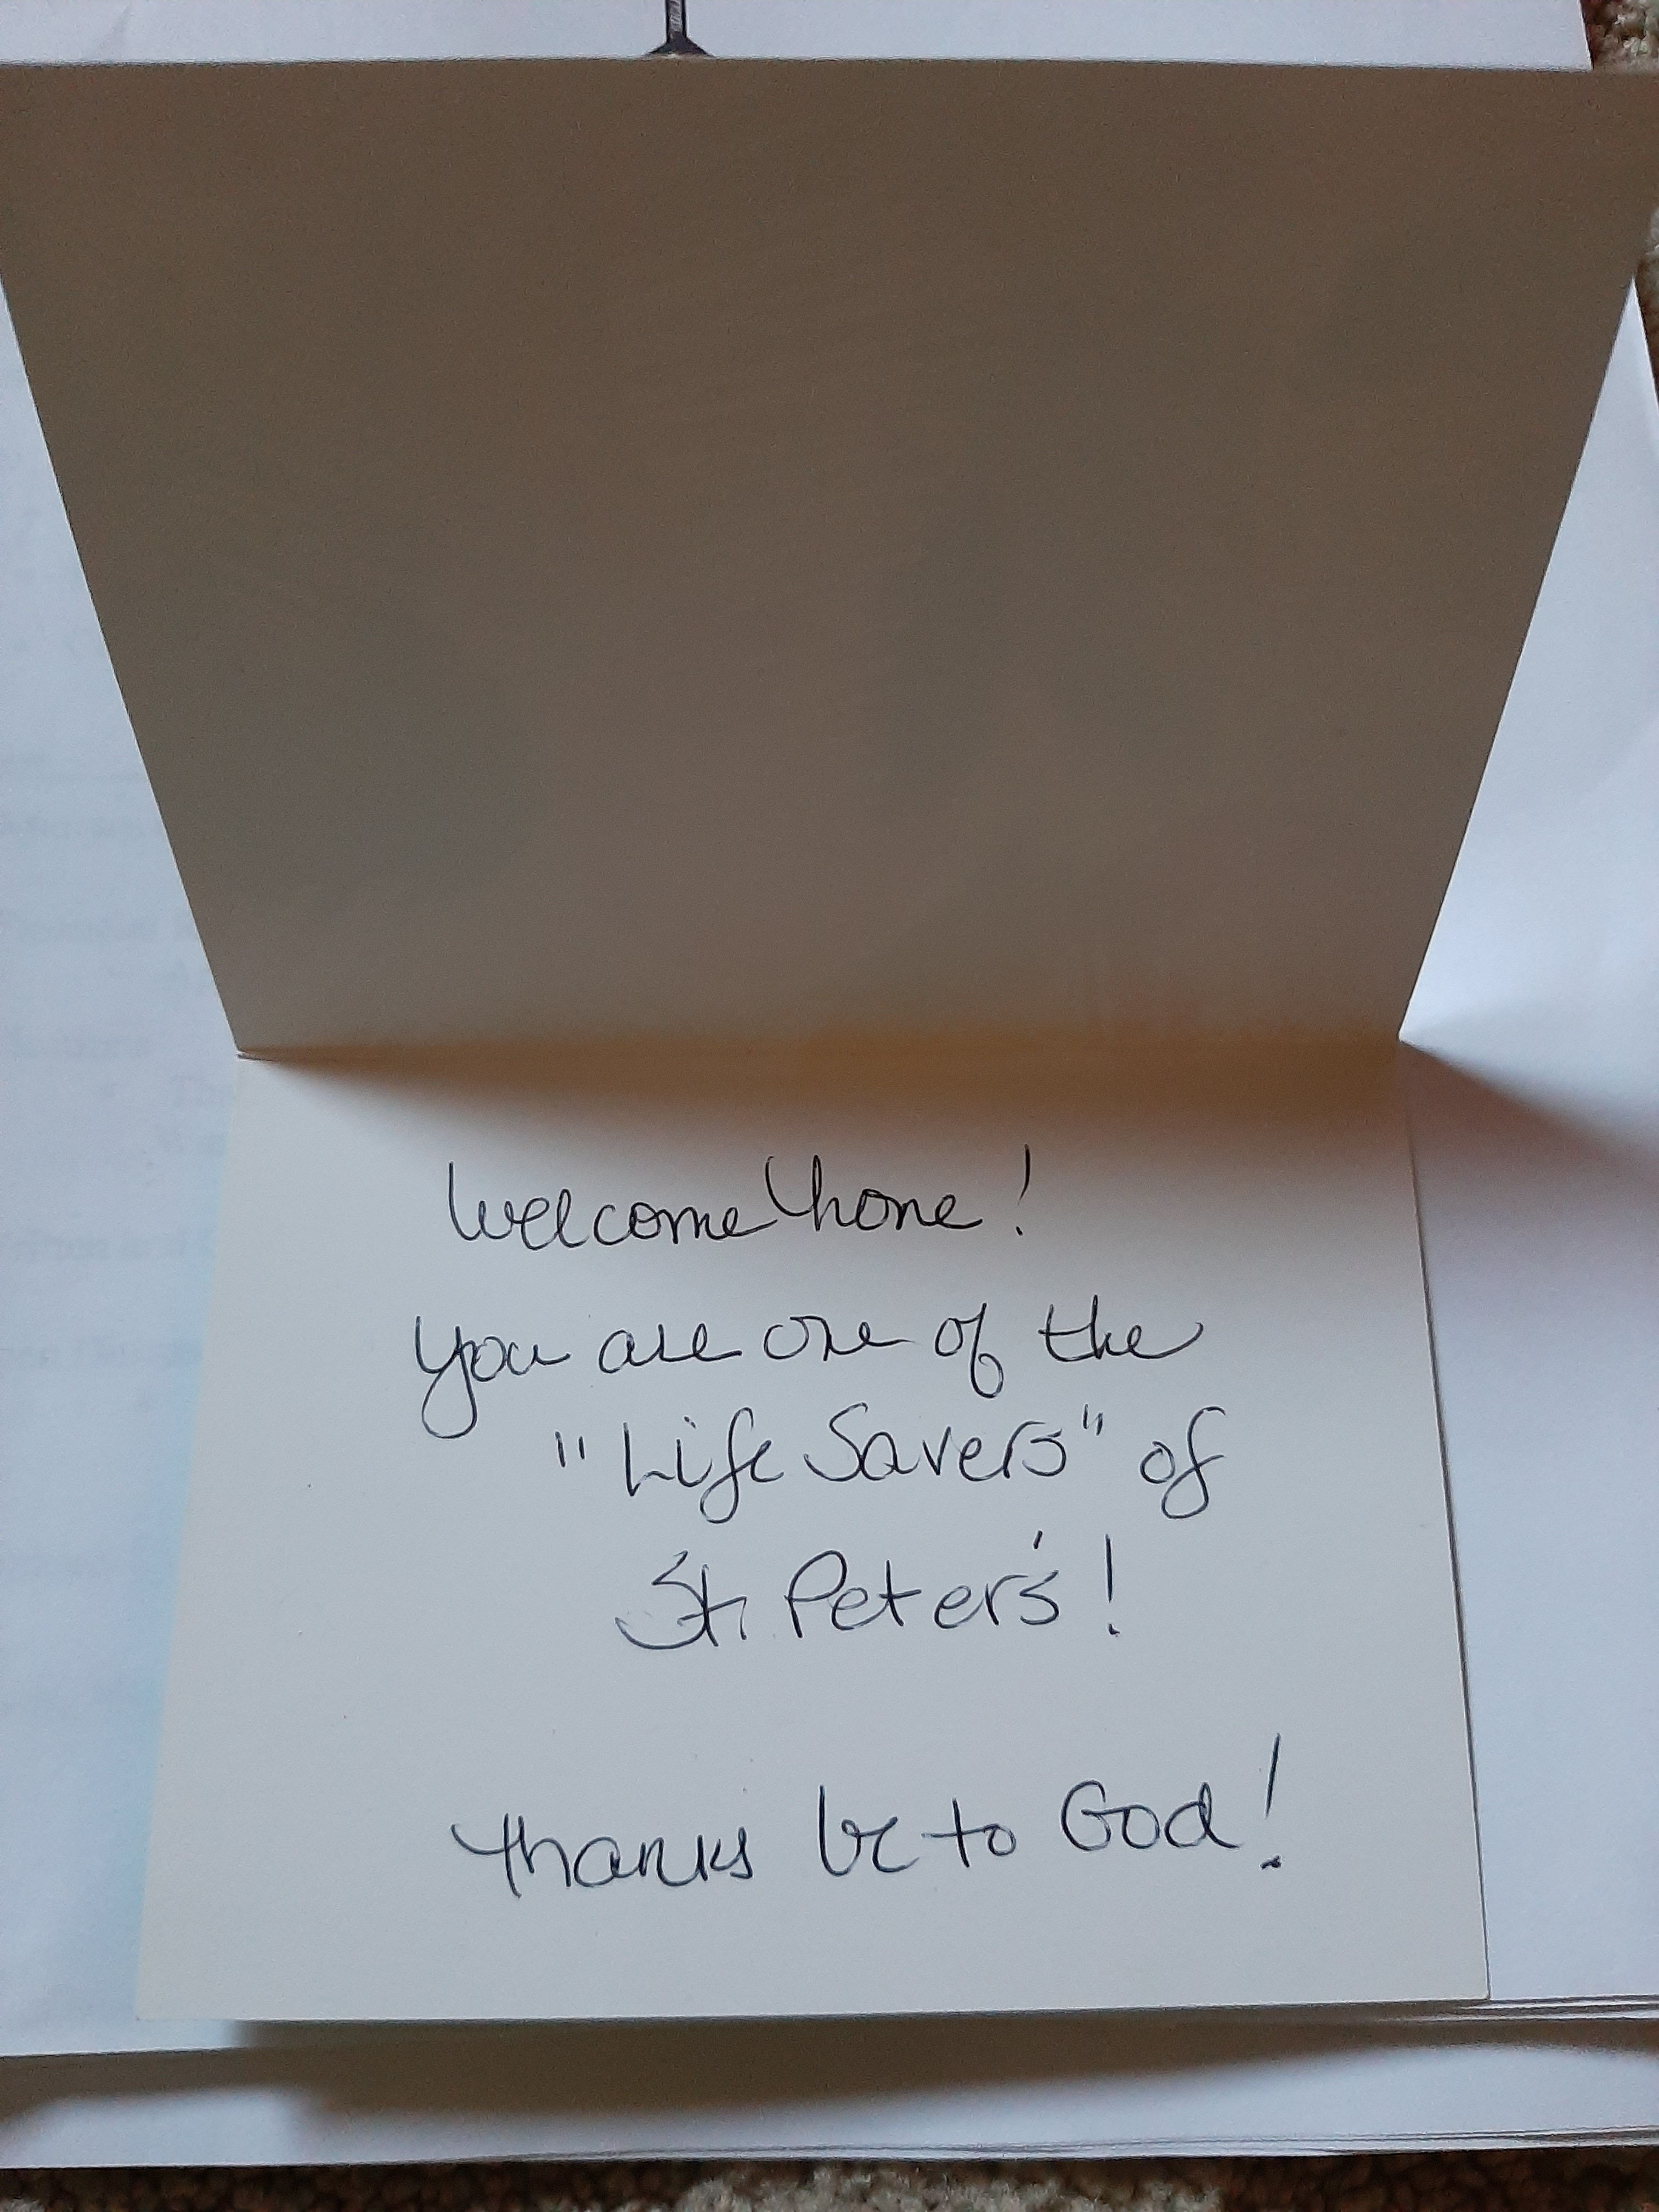 Welcome home!
You are one of the
"Life Savers" of
St. Peter's!
Thanks be to God!